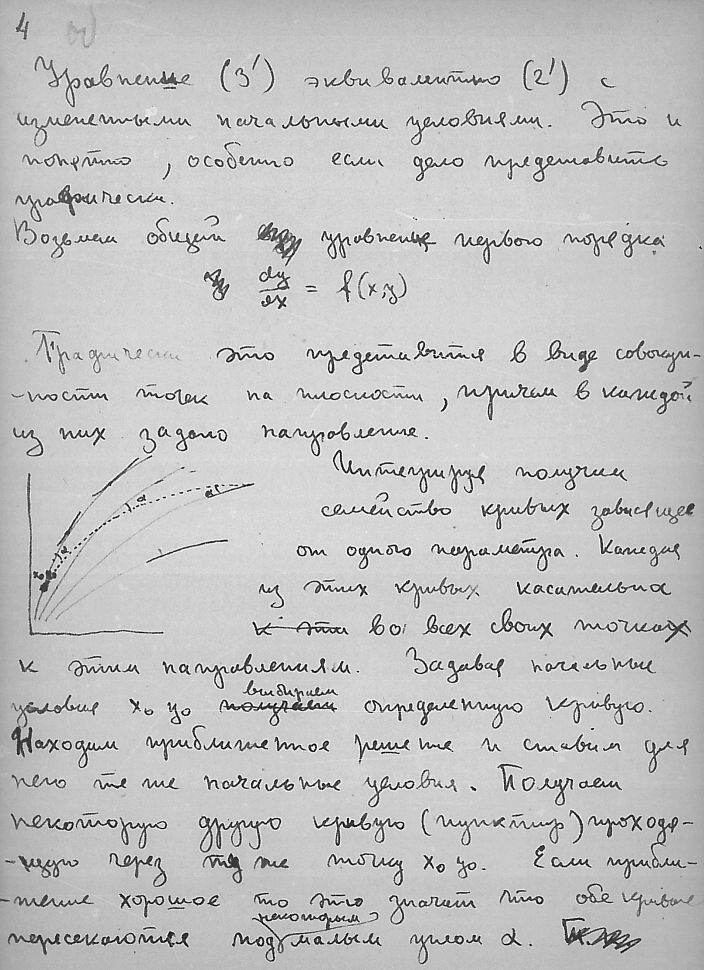 4
Уравнение (3') эквивалентно (2') с
измененными начальными условиями. Это и
понятно, особенно если дело представить
графически.
Возьмем общий уравнение первого порядка.
dy/dx = f(x,y)
Графически это представится в виде совокуп-
-ности точек на плоскости, причем в каждой
из них задано направление.
Интегрируя получим
семейство кривых зависящее
от одного параметра. Каждая
из этих кривых касательна
к эти во всех своих точках
к этим направлениям. Задавая начальные
выбираем
условия x₀ y₀ получаем определенную кривую.
Находим приближенное решение и ставим для
него те же начальные условия. Получаем
некоторую другую кривую (пунктир) проходя-
-щую через ту же точку x₀ y₀. Если прибли-
-жение хорошое то это значит что обе кривые
некоторым
пересекаются под малым углом α.
x₀ y₀
α
α
α